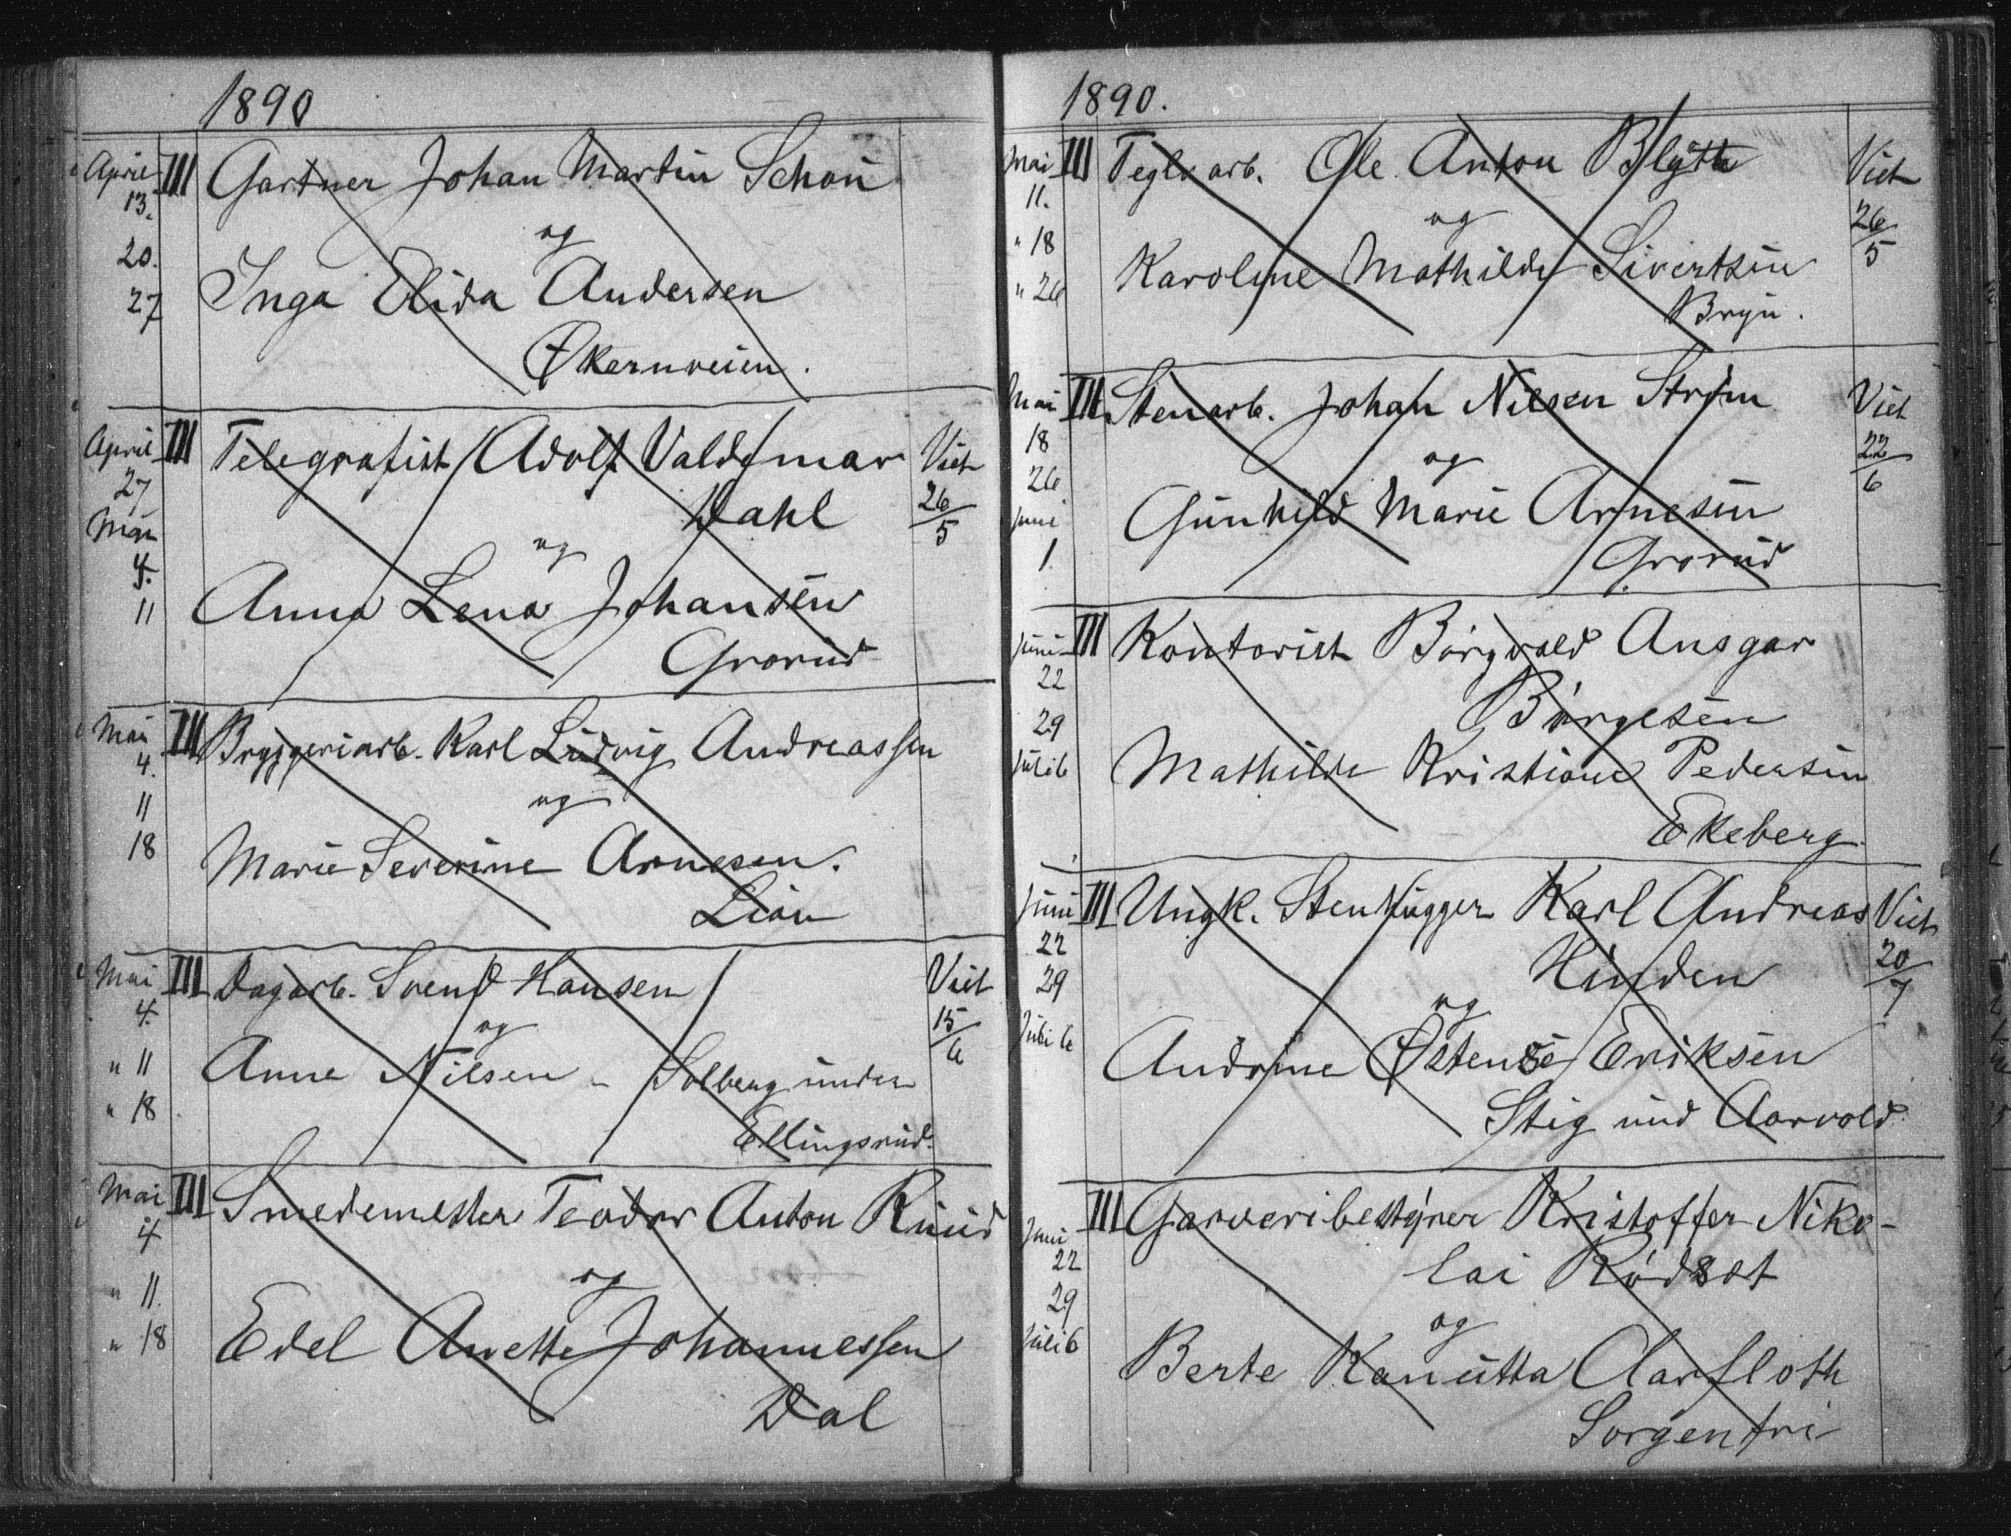 1890
April III Gartner Johan Martin Schøn
13.
og
20. Inga Elida Andersen
27
Økernveien.
April III Telegrafist Adolf Valdemar Viet
27 Dahl 26/5
Mai og
4. Anna Lena Johansen
11 Grorud
Mai III Bryggeriarb. Karl Ludvig Andreassen
4.
11 og
18 Marie Severine Arnesen.
Lian
Mai III Dagarb. Svend Hansen Viet
4. og 15/6
" 11 Anne Nilsen - Solberg under
" 18 Ellingsrud.
Mai III Smedemester Teodor Anton Ruud
4
" 11. og
" 18 Edel Anette Johannessen
Dal
1890.
Mai III Teglv.arb. Ole Anton Blytt Viet
11. og 26/5
" 18 Karoline Mathilde Sivertsen
" 26 Bryn.
Mai III Stenarb. Johan Nilsen Strøm Viet
18 og 22/6
26 Gunhild Marie Arnesen
Juni
1. Grorud
Juni III Kontorist Børgvald Ansgar
22 Børgesen
29
Juli 6 Mathilde Kristiane Pedersen
Ekeberg.
Juni III Ungk. Stenhugger Karl Andreas Viet
22 Hinden 20/7
29 og
Juli 6 Andrine Østensé Eriksen
Stig und Aarvold
III Garveribestyrer Kristoffer Niko-
Juni
22 lai Rødsæt
29 og
Juli 6 Berte Kanutta Aarfloth
Sorgenfri